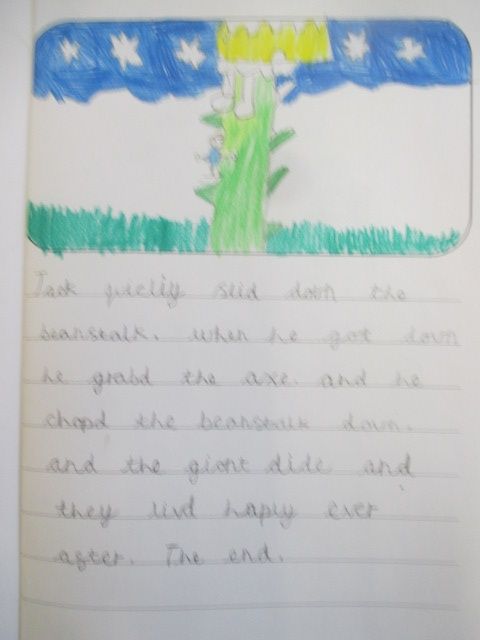 Jack quicliy slid down the
beanstalk. when he got down
he grabd the axe. and he
chopd the beanstalk down.
and the giant dide and
they livd haply ever
after. The end.